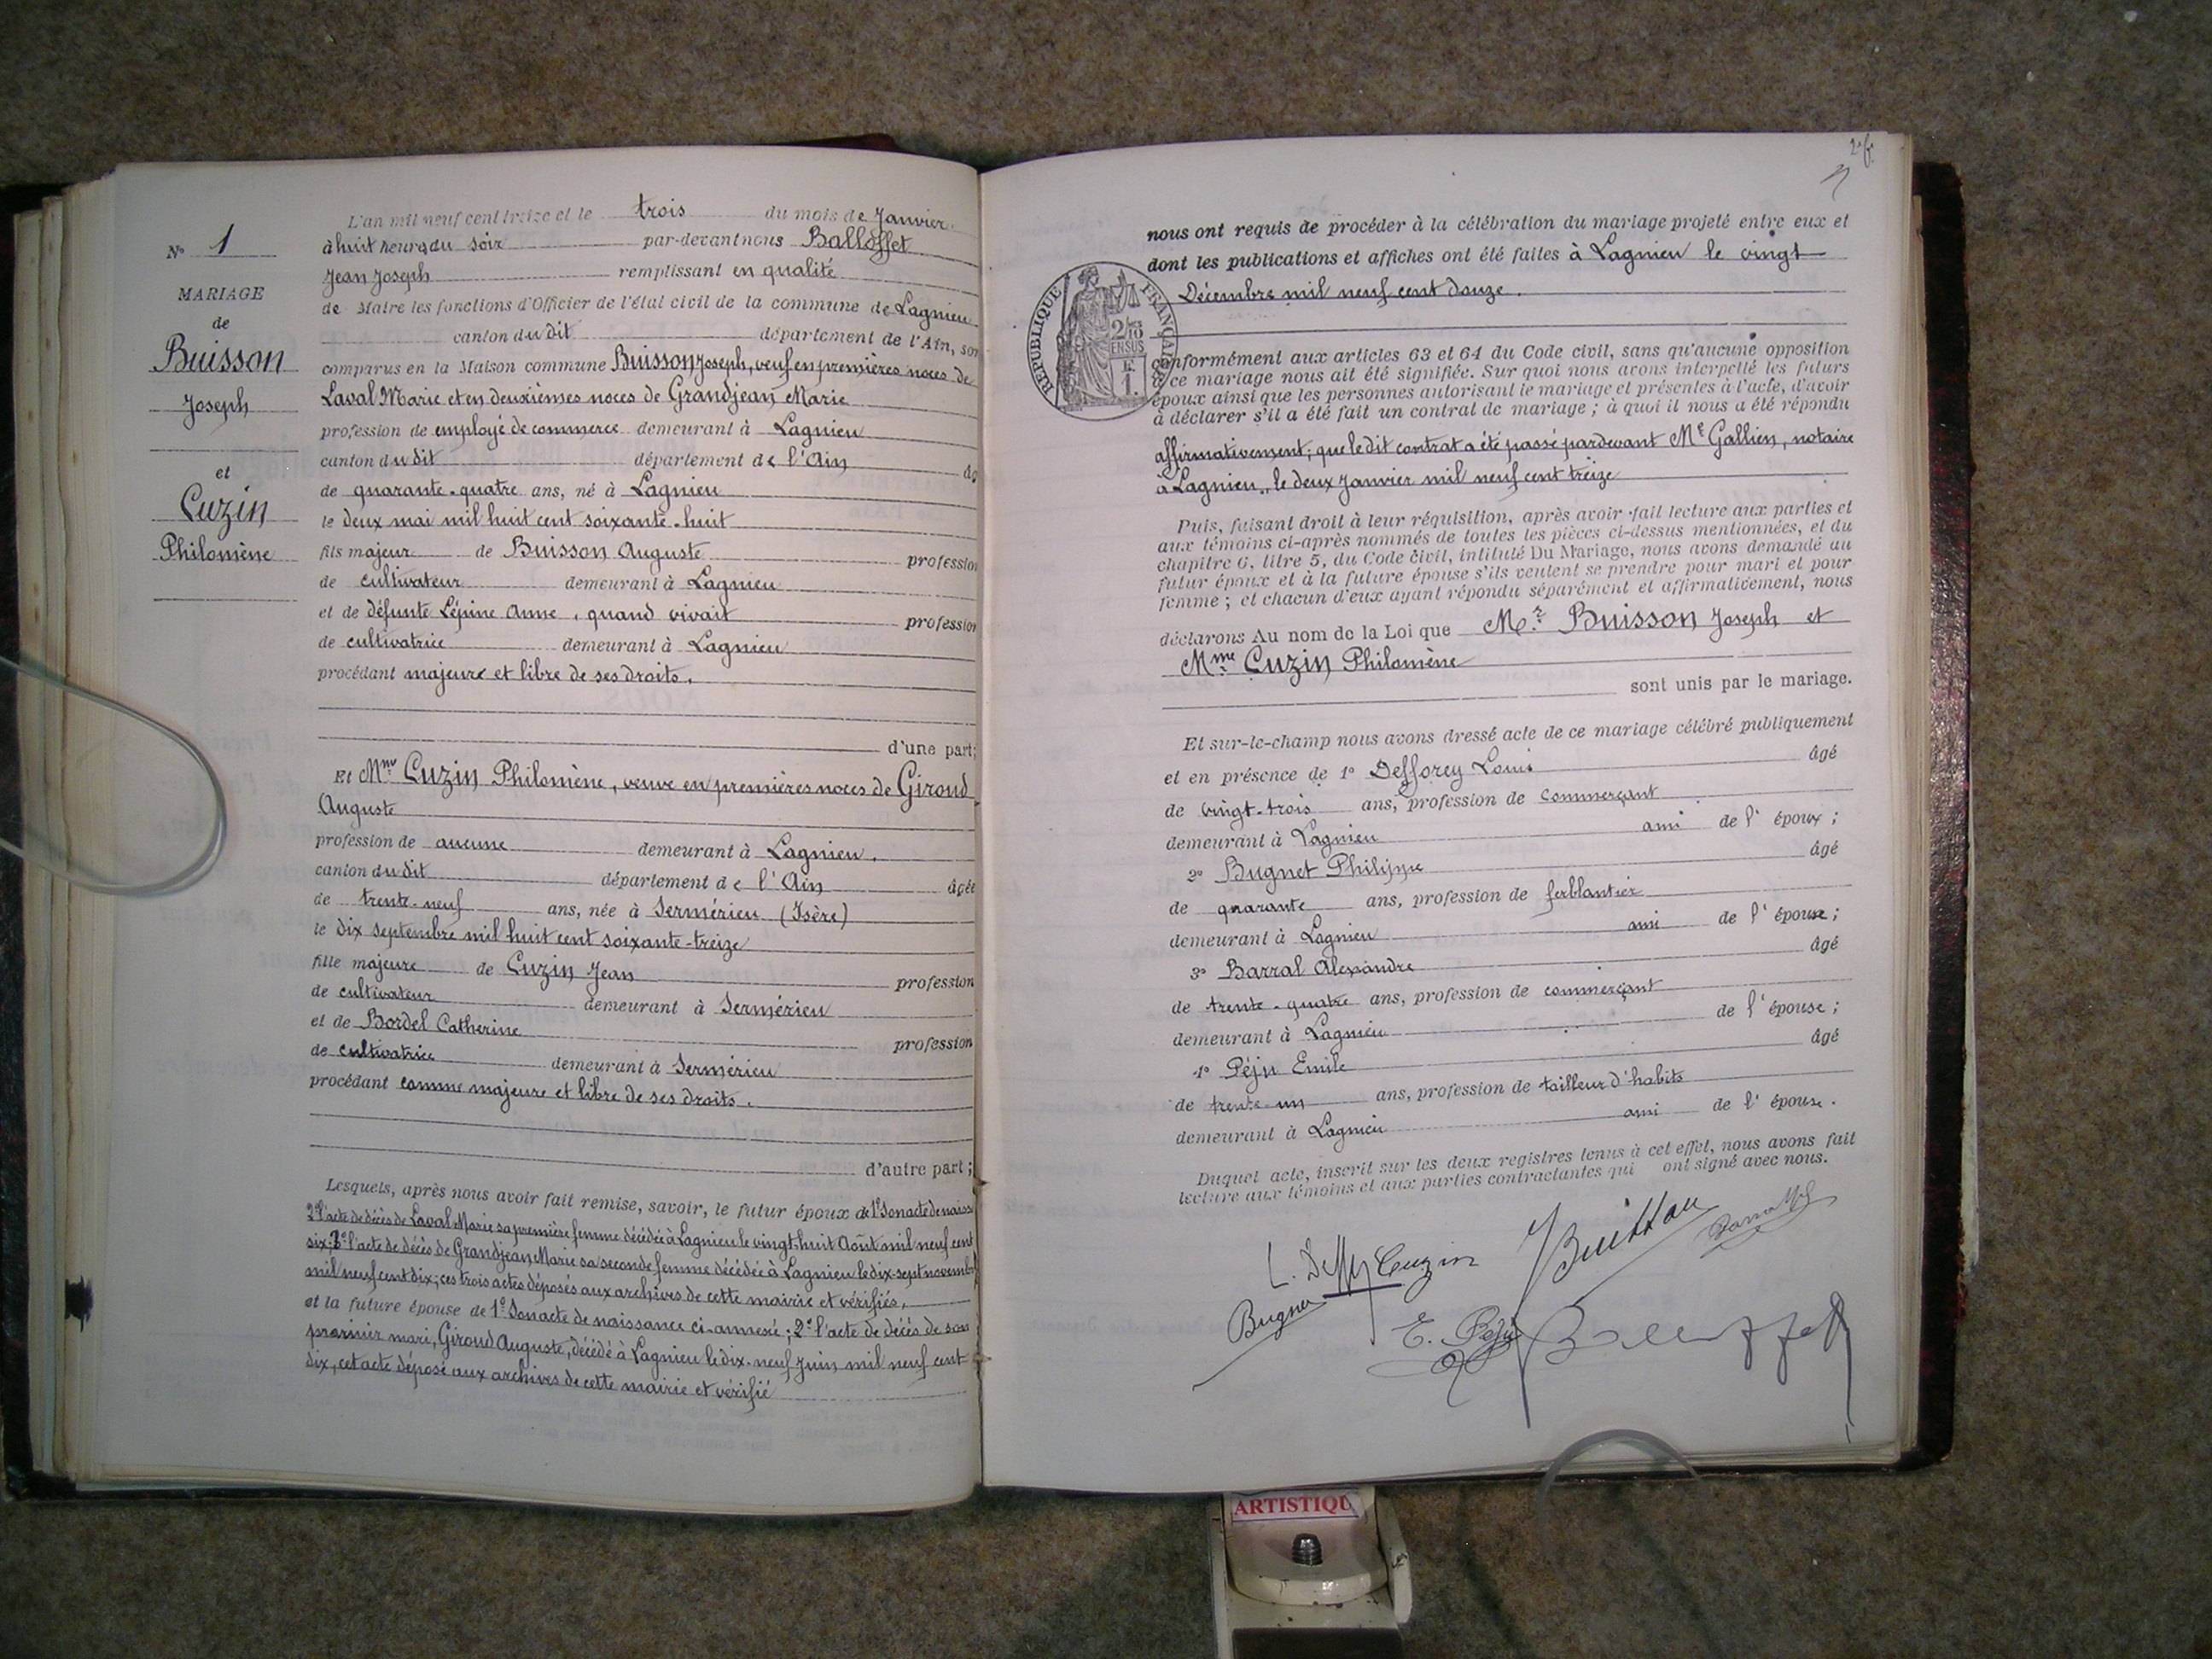 N° 1
MARIAGE
de
Buisson
Joseph
et
Cuzin
Philomène
L'an mil neuf cent treize et le trois du mois de Janvier
à huit heures du soir par-devant nous Balloffet
Jean Joseph remplissant en qualité
de Maire les fonctions d'Officier de l'état civil de la commune de Lagnieu
canton du dit département de l'Ain, son
comparus en la Maison commune Buisson Joseph, veuf en premières noces de
Laval Marie et en deuxièmes noces de Grandjean Marie
profession de employé de commerce demeurant à Lagnieu
canton du dit département de l'Ain âg
de quarante-quatre ans, né à Lagnieu
le deux mai mil huit cent soixante-huit
fils majeur de Buisson Auguste profession
de cultivateur demeurant à Lagnieu
et de défunte Lépine Anne, quand vivait profession
de cultivatrice demeurant à Lagnieu
procédant majeure et libre de ses droits.
d'une part;
Et Mme Cuzin Philomène, veuve en premières noces de Giroud
Auguste
profession de aucune demeurant à Lagnieu.
canton du dit département de l'Ain âgée
de trente-neuf ans, née à Sermérieu (Isère)
le dix septembre mil huit cent soixante-treize
fille majeure de Cuzin Jean profession
de cultivateur demeurant à Sermérieu
et de Bordel Catherine profession
de cultivatrice demeurant à Sermérieu
procédant comme majeure et libre de ses droits.
d'autre part;
Lesquels, après nous avoir fait remise, savoir, le futur époux de 1° Son acte de naiss
2° l'acte de décès de Laval Marie sa première femme décédée à Lagnieu le vingt-huit Août mil neuf cent
six; 3° l'acte de décès de Grandjean Marie sa seconde femme décédée à Lagnieu le dix-sept novembre
mil neuf cent dix; ces trois actes déposés aux archives de cette mairie et vérifiés,
et la future épouse de 1° Son acte de naissance ci-annexé; 2° l'acte de décès de son
premier mari, Giroud Auguste, décédé à Lagnieu le dix-neuf Juin mil neuf cent
dix, cet acte déposé aux archives de cette mairie et vérifié
nous ont requis de procéder à la célébration du mariage projeté entre eux et
dont les publications et affiches ont été faites à Lagnieu le vingt
Décembre mil neuf cent douze.
RÉPUBLIQUE FRANÇAISE
conformément aux articles 63 et 64 du Code civil, sans qu'aucune opposition
à ce mariage nous ait été signifiée. Sur quoi nous avons interpellé les futurs
époux ainsi que les personnes autorisant le mariage et présentes à l'acte, d'avoir
à déclarer s'il a été fait un contrat de mariage; à quoi il nous a été répondu
affirmativement; que le dit contrat a été passé pardevant Me Gallien, notaire
à Lagnieu, le deux Janvier mil neuf cent treize
Puis, faisant droit à leur réquisition, après avoir fait lecture aux parties et
aux témoins ci-après nommés de toutes les pièces ci-dessus mentionnées, et du
chapitre 6, titre 5, du Code civil, intitulé Du Mariage, nous avons demandé au
futur époux et à la future épouse s'ils veulent se prendre pour mari et pour
femme; et chacun d'eux ayant répondu séparément et affirmativement, nous
déclarons Au nom de la Loi que Mr Buisson Joseph et
Mme Cuzin Philomène
sont unis par le mariage.
Et sur-le-champ nous avons dressé acte de ce mariage célébré publiquement
et en présence de 1° Defforey Louis âgé
de vingt-trois ans, profession de commerçant
demeurant à Lagnieu ami de l'époux;
2° Bugnet Philippe âgé
de quarante ans, profession de ferblantier
demeurant à Lagnieu ami de l'épouse;
3° Barral Alexandre âgé
de trente-quatre ans, profession de commerçant
demeurant à Lagnieu de l'épouse;
4° Péju Emile âgé
de trente-un ans, profession de tailleur d'habits
demeurant à Lagnieu ami de l'épouse.
Duquel acte, inscrit sur les deux registres tenus à cet effet, nous avons fait
lecture aux témoins et aux parties contractantes qui ont signé avec nous.
Cuzin
E. Péju
Balloffet
ARTISTIQU